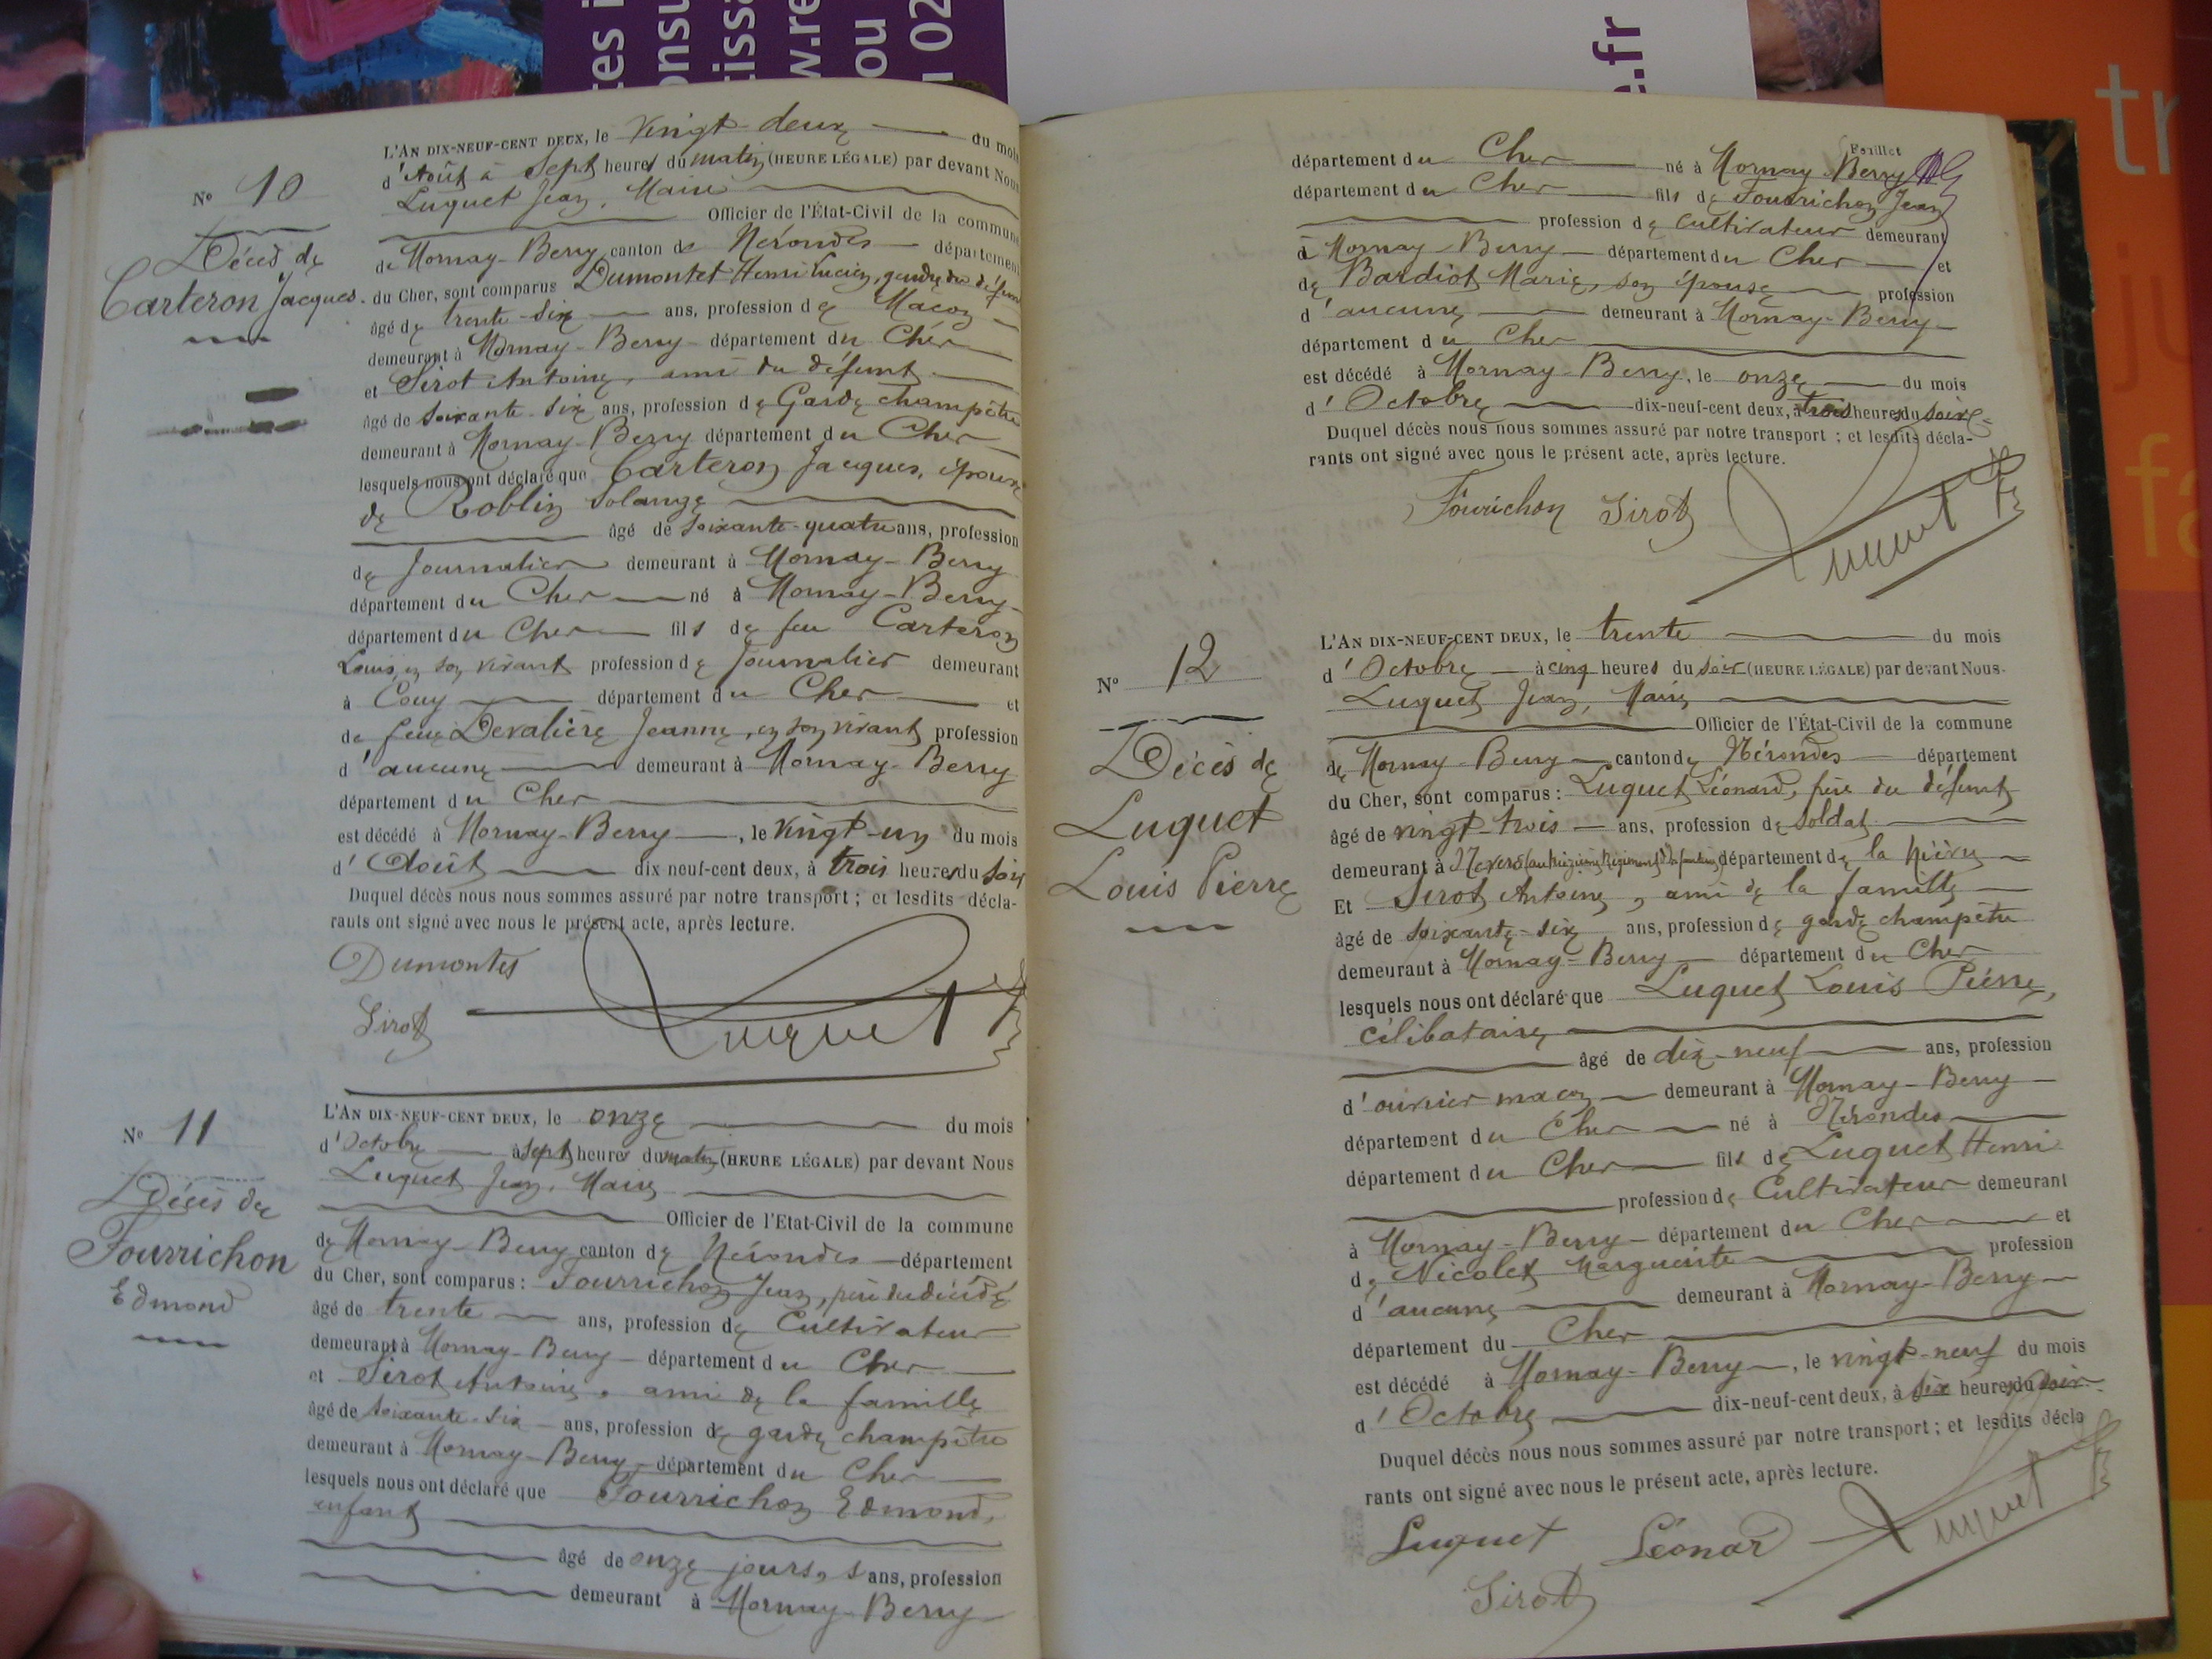 tes i
onsu
tissa
w.re
ou
02
e.fr
tr
j
fa
N° 10
Décès de
Carteron Jacques.
L'AN DIX-NEUF-CENT DEUX, le vingt-deux du mois
d'Août à sept heures du matin (HEURE LÉGALE) par devant Nous
Luquet Jean, Maire
Officier de l'État-Civil de la commune
de Mornay-Berry canton de Nérondes département
du Cher, sont comparus Dumontet Henri Lucien, gendre du défunt
âgé de trente-six ans, profession de Maçon
demeurant à Mornay-Berry département du Cher
et Sirot Antoine, ami du défunt
âgé de soixante-six ans, profession de Garde champêtre
demeurant à Mornay-Berry département du Cher
lesquels nous ont déclaré que Carteron Jacques, époux
de Roblin Solange
âgé de soixante-quatre ans, profession
de Journalier demeurant à Mornay-Berry
département du Cher né à Mornay-Berry
département du Cher fils de feu Carteron
Louis, en son vivant profession de Journalier demeurant
à Couy département du Cher et
de feue Devalière Jeanne, en son vivant profession
d'aucune demeurant à Mornay-Berry
département du Cher
est décédé à Mornay-Berry, le vingt-un du mois
d'Août dix-neuf-cent deux, à trois heures du soir
Duquel décès nous nous sommes assuré par notre transport ; et lesdits décla-
rants ont signé avec nous le présent acte, après lecture.
Dumontet
Sirot Luquet
N° 11
Décès de
Fourrichon
Edmond
L'AN DIX-NEUF-CENT DEUX, le onze du mois
d'Octobre à sept heures du matin (HEURE LÉGALE) par devant Nous
Luquet Jean, Maire
Officier de l'Etat-Civil de la commune
de Mornay-Berry canton de Nérondes département
du Cher, sont comparus : Fourrichon Jean, père du décédé
âgé de trente ans, profession de Cultivateur
demeurant à Mornay-Berry département du Cher
et Sirot Antoine, ami de la famille
âgé de soixante-six ans, profession de garde champêtre
demeurant à Mornay-Berry département du Cher
lesquels nous ont déclaré que Fourrichon Edmond,
enfant
âgé de onze jours, s ans, profession
demeurant à Mornay-Berry
Feuillet
département du Cher né à Mornay-Berry
département du Cher fils de Fourrichon Jean
profession de Cultivateur demeurant
à Mornay-Berry département du Cher et
de Bardiot Marie, son épouse profession
d'aucune demeurant à Mornay-Berry
département du Cher
est décédé à Mornay-Berry, le onze du mois
d'Octobre dix-neuf-cent deux, à trois heures du soir
Duquel décès nous nous sommes assuré par notre transport ; et lesdits décla-
rants ont signé avec nous le présent acte, après lecture.
Fourichon Sirot Luquet
N° 12
Décès de
Luquet
Louis Pierre
L'AN DIX-NEUF-CENT DEUX, le trente du mois
d'Octobre à cinq heures du soir (HEURE LÉGALE) par devant Nous.
Luquet Jean, Maire
Officier de l'État-Civil de la commune
de Mornay-Berry canton de Nérondes département
du Cher, sont comparus : Luquet Léonard, frère du défunt
âgé de vingt-trois ans, profession de soldat
demeurant à Nevers (au treizième Régiment d'Infanterie) département de la Nièvre
Et Sirot Antoine, ami de la famille
âgé de soixante-six ans, profession de garde champêtre
demeurant à Mornay-Berry département du Cher
lesquels nous ont déclaré que Luquet Louis Pierre,
célibataire
âgé de dix-neuf ans, profession
d'ouvrier maçon demeurant à Mornay-Berry
département du Cher né à Nérondes
département du Cher fils de Luquet Henri
profession de Cultivateur demeurant
à Mornay-Berry département du Cher et
de Nicolet Marguerite profession
d'aucune demeurant à Mornay-Berry
département du Cher
est décédé à Mornay-Berry, le vingt-neuf du mois
d'Octobre dix-neuf-cent deux, à six heures du soir
Duquel décès nous nous sommes assuré par notre transport ; et lesdits décla
rants ont signé avec nous le présent acte, après lecture.
Luquet Léonard Luquet
Sirot